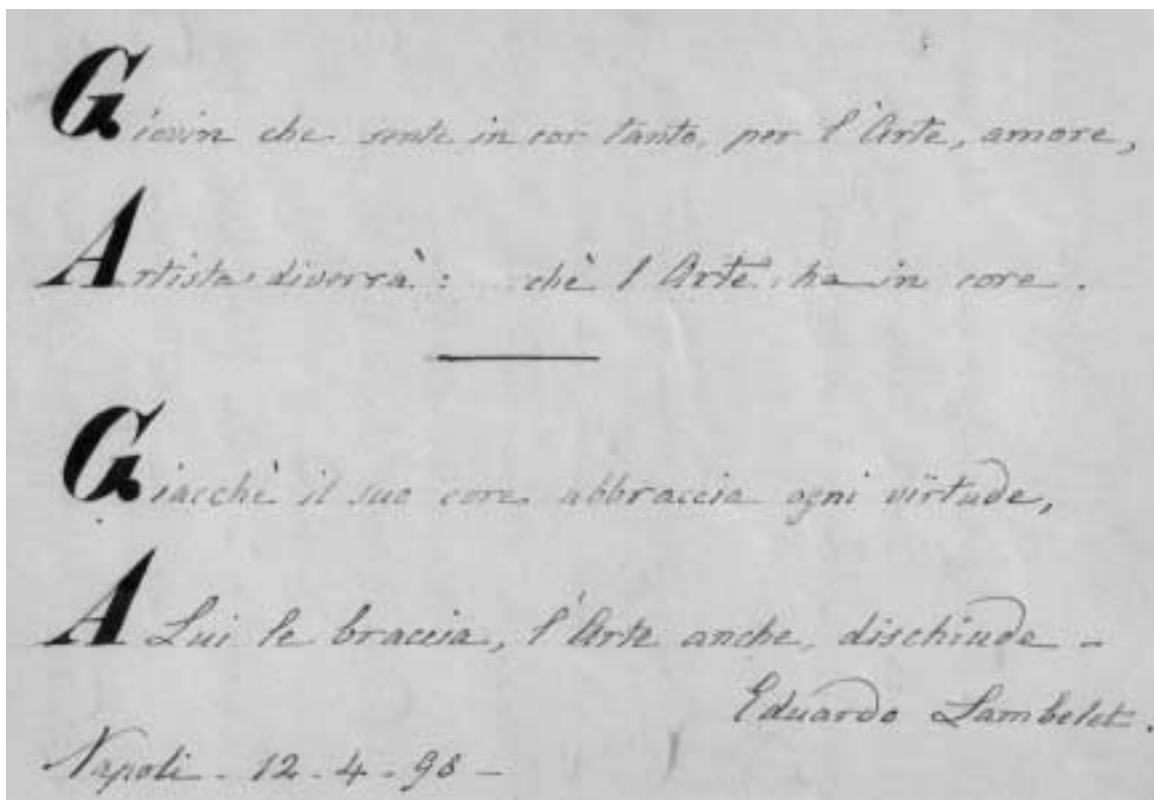 Giovin che sente in cor tanto, per l'Arte, amore,
Artista diverrà: chè l'Arte ha in core.
Giacchè il suo core abbraccia ogni virtude,
A Lui le braccia, l'Arte anche, dischiude -
Eduardo Lambelet.
Napoli - 12 - 4 - 98 -